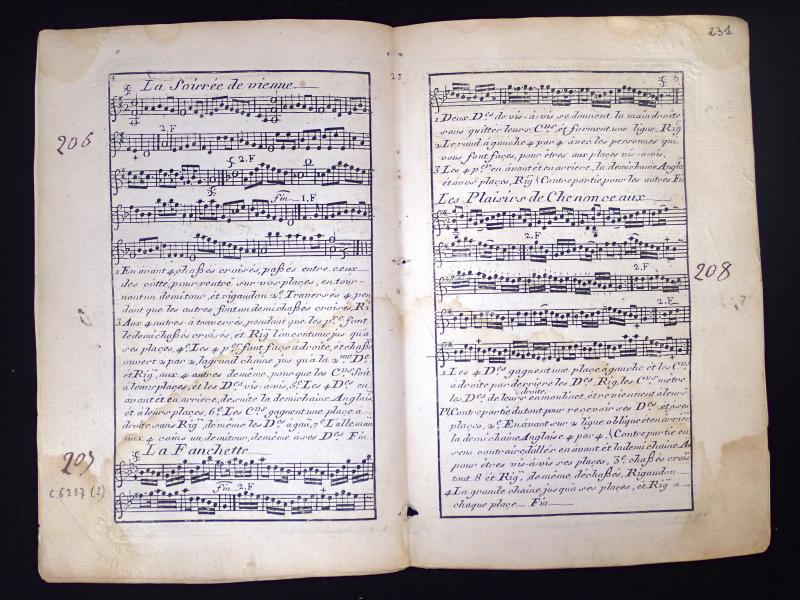 4
La Soirée de vienne
206
2.F
2.F
fin 1.F
1 En avant 4, chaßés croisés, paßés entre ceux
des cotté, pour rentré sur vos plaçes, en tour-
nant un demi tour, et rigaudon 2.e Traversés 4, pen
dant que les autres finit un demi chaßés croisés, Rig
3 Aux 4 autres à traversés, pendant que les pre. font
le demi chaßés croisés, et Rig l'on continue jus qu'a
ses plaçes, 4.e Les 4 pre. font façe à droite, et chaßés
ouvert 2 par 2, la grand chaine jus qu'a la 2.me De.
et Rig, aux 4 autres de même, pour que les Cvrs Soit
à leurs plaçes, et les Des. vis-a-mis, 5.e Les 4 Des. en
avant et en arriere, de suite la demi chaine Anglaise
et à leurs plaçes, 6.e Les Cvrs gagnent une plaçe à
droite sans Rig, de même les Des. à gau, 7.e L'alleman
aux 4 coins un demi tour, de même a ses Des. Fin
207
La Fanchette
C.6287 (2)
fin 2.F
231
5
1. Deux Des. de vis-à-vis se donnent la main droite
sans quitter leurs Cvrs, et forment une ligne, Rig
2 Le rond à gauche 4 par 4 avec les personnes qui
vous font façes, pour êtres aux plaçes vis-a-vis,
3. Les 4 pre. en avant et en arriere, la demi chaine Angla
et à vos plaçes, Rig Contre partie pour les autres Fin
Les Plaisirs de Chenonceaux
2.F
208
2.F
2.F
1. Les 4 Des. gagnent une plaçe à gauche et les Cvrs
à droite par derriere les Des. Rig, les Cvrs mettre
droite
les Des. de leurs en moulinet, et reviennent à leurs
Pl Contre partie du tout pour reçenoir ses Des. et à ses
plaçes, 2.e En avant sur 2 ligne oblique et en arrière
la demi chaine Anglaise 4 par 4, Contre partie en
sens contraire, d'aller en avant et la demi chaine An
pour êtres vis-a-vis ses plaçes, 3.e chaßés crois
tout 8 et Rig, de même déchaßés, Rigaudon
4 La grande chaine jus qu'à ses plaçes, et Rig a
chaque plaçe Fin